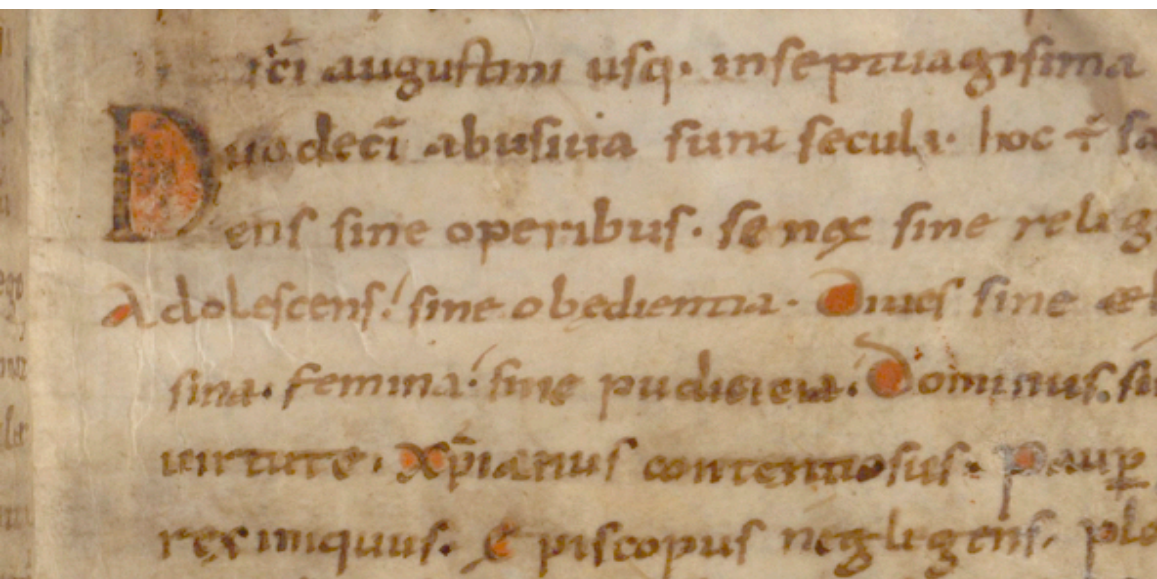 sc̄i augustini usq· inseptuagisima
Duodeci̅ abusiuia sunt secula· hoc ÷̄ sa
ens sine operibus· senex sine relig
Adolescens! sine obedientia· Diues sine el
sina· femina· sine pudicicia· Dominus· si
uirtute· xp̄ianus contentiosus· paup̲
rex iniquus· Episcopus neglegens· ple